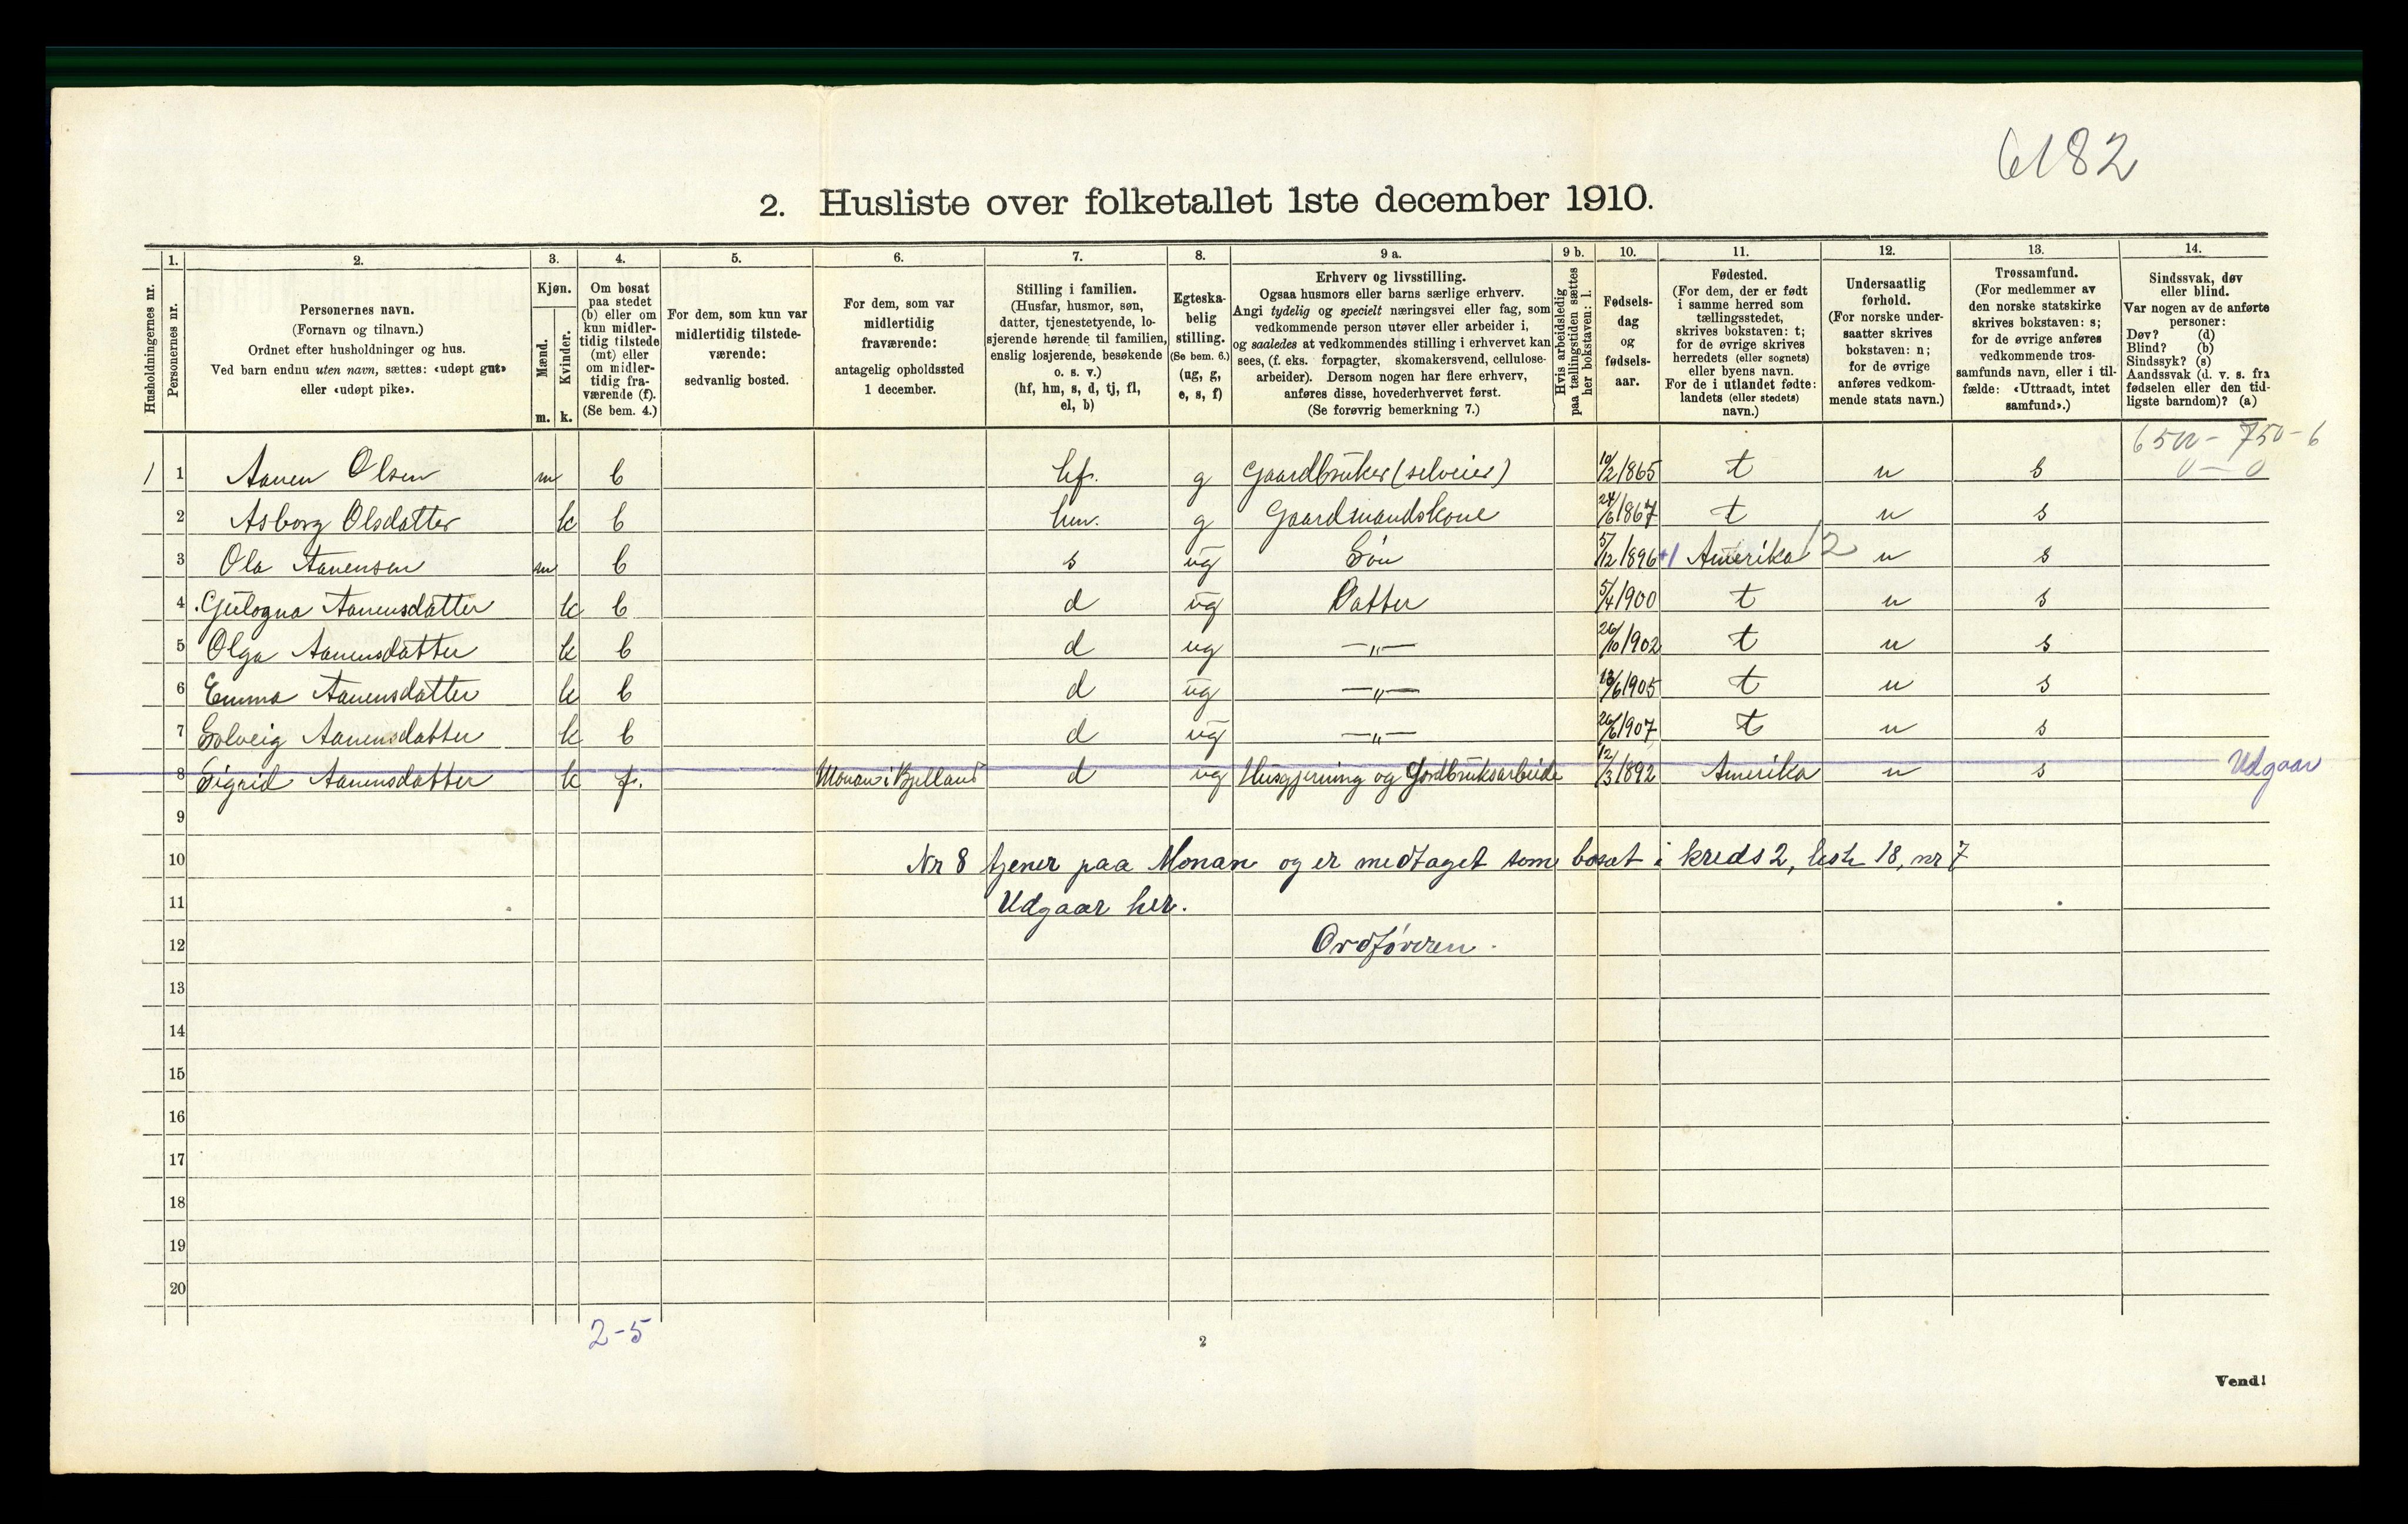 6182
2. Husliste over folketallet 1ste december 1910.
Husholdningernes nr.
1.
Personernes nr.
2.
Personernes navn.
(Fornavn og tilnavn.)
Ordnet efter husholdninger og hus.
Ved barn endnu uten navn, sættes: «udøpt gut»
eller «udøpt pike».
3.
Kjøn.
Mænd.
m.
Kvinder.
k.
4.
Om bosat
paa stedet
(b) eller om
kun midler-
tidig tilstede
(mt) eller
om midler-
tidig fra-
værende (f).
(Se bem. 4.)
5.
For dem, som kun var
midlertidig tilstede-
værende:
sedvanlig bosted.
6.
For dem, som var
midlertidig
fraværende:
antagelig opholdssted
1 december.
7.
Stilling i familien.
(Husfar, husmor, søn,
datter, tjenestetyende, lo-
sjerende hørende til familien,
enslig losjerende, besøkende
o. s. v.)
(hf, hm, s, d, tj, fl,
el, b)
8.
Egteska-
belig
stilling.
(Se bem. 6.)
(ug, g,
e, s, f)
9 a.
Erhverv og livsstilling.
Ogsaa husmors eller barns særlige erhverv.
Angi tydelig og specielt næringsvei eller fag, som
vedkommende person utøver eller arbeider i,
og saaledes at vedkommendes stilling i erhvervet kan
sees, (f. eks. forpagter, skomakersvend, cellulose-
arbeider). Dersom nogen har flere erhverv,
anføres disse, hovederhvervet først.
(Se forøvrig bemerkning 7.)
9 b.
Hvis arbeidsledig
paa tællingstiden sættes
her bokstaven: l.
10.
Fødsels-
dag
og
fødsels-
aar.
11.
Fødested.
(For dem, der er født
i samme herred som
tællingsstedet,
skrives bokstaven: t;
for de øvrige skrives
herredets (eller sognets)
eller byens navn.
For de i utlandet fødte:
landets (eller stedets)
navn.)
12.
Undersaatlig
forhold.
(For norske under-
saatter skrives
bokstaven: n;
for de øvrige
anføres vedkom-
mende stats navn.)
13.
Trossamfund.
(For medlemmer av
den norske statskirke
skrives bokstaven: s;
for de øvrige anføres
vedkommende tros-
samfunds navn, eller i til-
fælde: «Uttraadt, intet
samfund».)
14.
Sindssvak, døv
eller blind.
Var nogen av de anførte
personer:
Døv? (d)
Blind? (b)
Sindssyk? (s)
Aandssvak (d. v. s. fra
fødselen eller den tid-
ligste barndom)? (a)
6500 - 750 - 6
0 - 0
1 1 Aanen Olsen m b hf. g Gaardbruker (selveier) 10/2 1865 t n s
2 Asborg Olsdatter k b hm. g Gaardmandskone 24/6 1867 t n s
3 Ola Aanensen m b s ug Søn 5/12 1896 +1 Amerika 12 n s
4 Gulogna Aanensdatter k b d ug Datter 5/4 1900 t n s
5 Olga Aanensdatter k b d ug —"— 26/10 1902 t n s
6 Emma Aanensdatter k b d ug —"— 13/6 1905 t n s
7 Solveig Aanensdatter k b d ug —"— 26/6 1907 t n s
8 Sigrid Aanensdatter k f. Monan i Bjelland d ug Husgjerning og Jordbruksarbeide 12/3 1892 Amerika n s Udgaar
9
10 Nr 8 tjener paa Monan og er medtaget som bosat i kreds 2, liste 18, nr 7
11 Udgaar her.
12 Ordføreren.
13
14
15
16
17
18
19
20
2-5
2
Vend!